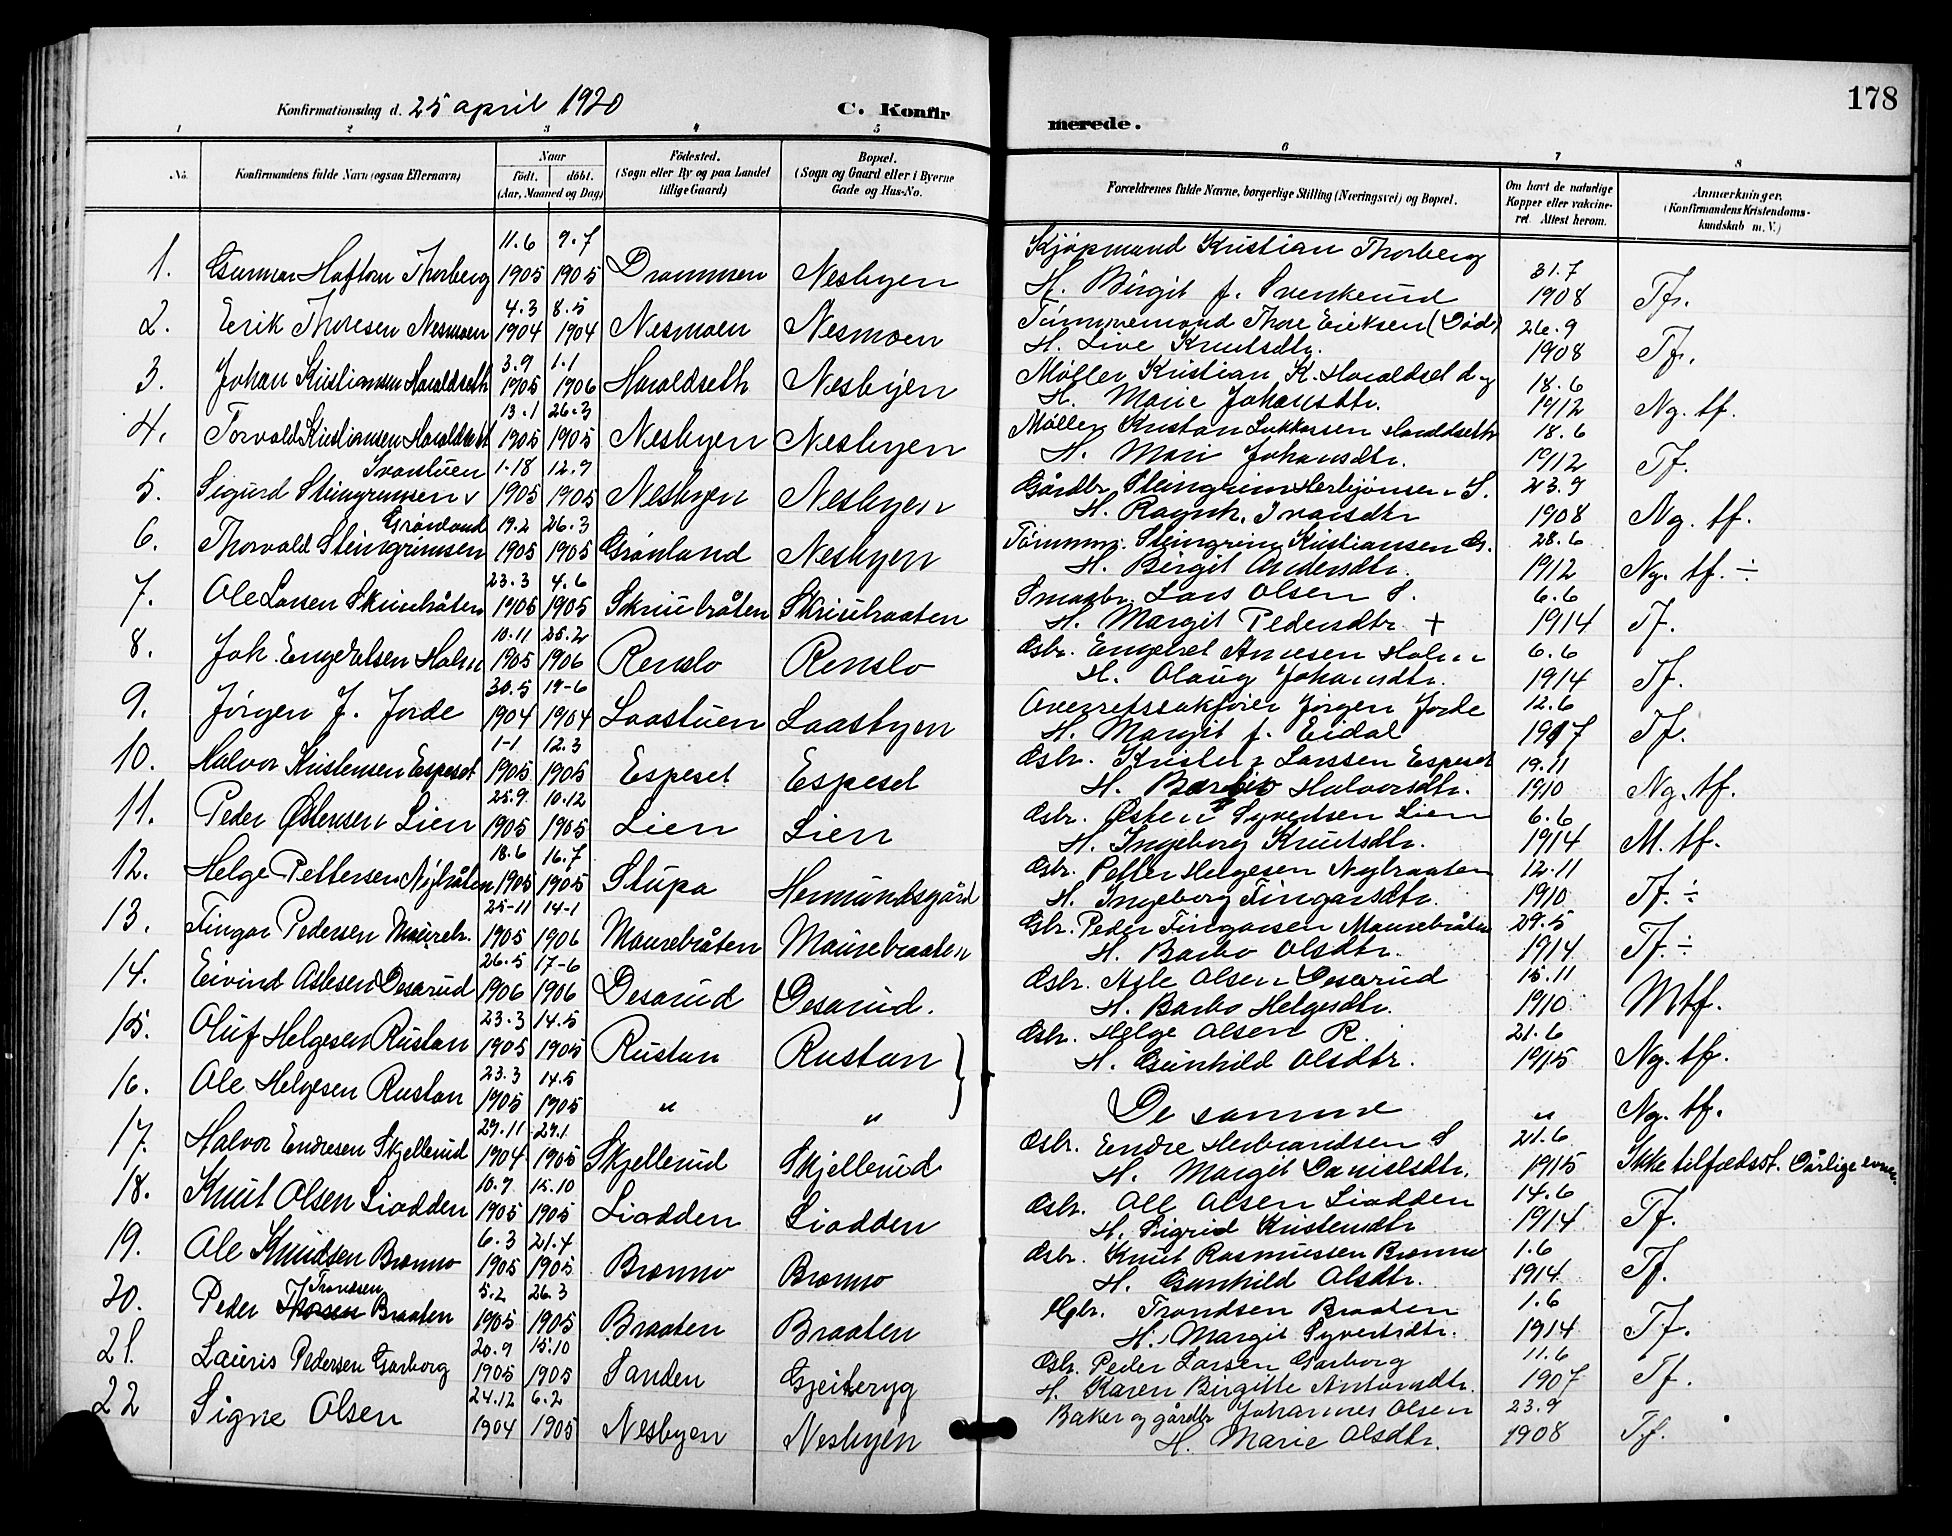 178
Konfirmationsdag d. 25 april 1920 C. Konfirmerede.
1 2 3 4 5 6 7 8
No. Konfirmandens fulde Navn (ogsaa Efternavn) Naar født. døbt. (Aar, Maaned og Dag) Fødested. (Sogn eller By og paa Landet tillige Gaard) Bopæl. (Sogn og Gaard eller i Byerne Gade og Hus-No. Forældrenes fulde Navne, borgerlige Stilling (Næringsvei) og Bopæl. Om havt de naturlige Kopper eller vakcineret. Attest herom. Anmærkninger. (Konfirmandens Kristendomskundskab m. V.)
11.6 9.7 Kjøpmand Kristian Thorberg 31.7
1. Gunnar Haftan Thorberg 1905 1905 Drammen Nesbyen H. Birgit f. Svenkerud 1908 Tfr.
4.3 8.5 Tømmermand Thore Eriksen (Død) 26.9
2. Erik Thoresen Nesmoen 1904 1904 Nesmoen Nesmoen H. Live Knutsdtr. 1908 Tf.
3.9 1.1 Møller Kristian K. Haraldset 18.6
3. Johan Kristiansen Haraldseth 1905 1906 Haraldseth Nesbyen H. Marie Johansdtr. 1912 Ng. tf.
13.1 26.3 Møller Kristian Haraldseth 18.6
4. Torvald Kristiansen Haraldset 1905 1905 Nesbyen Nesbyen H. Mari Johansdtr. 1912 Tf.
Ivarstuen 1.18 12.9 Gårdbr. Steingrim Herbjønsen S. 23.9
5. Sigurd Steingrimsen 1905 1905 Nesbyen Nesbyen H. Ragnh. Ivarsdtr 1908 Ng. tf.
Grønland 19.2 26.3 Tømmm. Steingrim Kristiansen G. 28.6
6. Thorvald Steingrimsen 1905 1905 Grønland Nesbyen H. Birgit Andersdtr. 1912 Ng. tf. ÷
23.3 4.6 Smaabr. Lars Olsen S. 6.6
7. Ole Larsen Skriubråten 1905 1905 Skriubråten Skriubraaten H. Margit Pedersdtr. + 1914 Tf.
10.11 25.2 Gsbr. Engebret Holm 6.6
8. Joh. Holm 1905 1906 Renslo Renslo H. Olaug Johansdtr. 1914 Tf.
30.5 19-6 Overretssakfører Jørgen Jorde 12.6
9. Jørgen J. Jorde 1904 1904 Laastuen Laasbyen H. Margit f. Eidal 1917 Tf.
1-1 12.3 Gsbr. Kristen Larssen Espeset 19.11
10. Halvor Kristensen Espeset 1905 1905 Espeset Espeset H. Halvorsdtr. 1910 Ng. tf.
25.9 10.12 Gsbr. Østen Syvertsen Lien 6.6
11. Peder Østensen Lien 1905 1905 Lien Lien H. Ingeborg Knutsdtr. 1914 M. tf.
18.6 16.7 Gsbr. Petter Helgesen Nybraaten 12.11
12. Helge Pettersen Nybråten 1905 1905 Stupa Hermundsgård H. Ingeborg Fingarsdtr. 1910 Tf. ÷
25-11 14-1 Gbr. Peder Fingarsen Maurebråten 29.5
13. Fingar Pedersen Maurebr. 1905 1906 Maurebråten Maurebraaten H. Barbo Olsdtr. 1914 Tf. ÷
26.5 17-6 Gsbr. Asle Olsen Desarud 15.11
14. Eivind Aslesen Desarud 1906 1906 Desarud Desarud. H. Barbo Helgesdtr. 1910 Mtf.
23.3 14.5 Gsbr. Helge Olsen R. 21.6
15. Oluf Helgesen Rustan 1905 1905 Rustan Rustan H. Gunhild Olsdtr. 1915 Ng. tf.
23.3 14.5
16. Ole Helgesen Rustan 1905 1905 " " De samme " Ng. tf.
29.11 29.1 Gsbr. Endre Herbrandsen S 21.6
17. Halvor Endresen Skjellerud 1904 1905 Skjellerud Skjellerud H. Margit Danielsdtr. 1915 Ikke tilfredsst. Dårlige evner.
10.9 15.10 Gsbr. Ole Olsen Liodden 14.6
18. Knut Olsen Liodden 1905 1905 Liodden Liodden H. Sigrid Kristensdtr 1914 Tf.
6.3 21.4 Gsbr. Knut Rasmussen Brenno 1.6
19. Ole Knudsen Brenno 1905 1905 Brenno Brenno H. Gunhild Olsdtr. 1914 Tf.
Trondsen 5.2 26.3 Trondsen Braaten 1.6
20. Peder Thorsen Braaten 1905 1905 Braaten Braaten H. Margit Syvertsdtr. 1914 Tf.
20.9 15.10 Gsbr. Peder Larsen Garborg 11.6
21. Lauris Pedersen Garborg 1905 1905 Sanden Gjeiteryg H. Karen Birgitte Antonsdtr. 1907 Tf.
24.12 6.2 Baker og gårdbr Johannes Olsen 23.9
22 Signe Olsen 1904 1905 Nesbyen Nesbyen H. Marie Olsdtr. 1908 Tf.